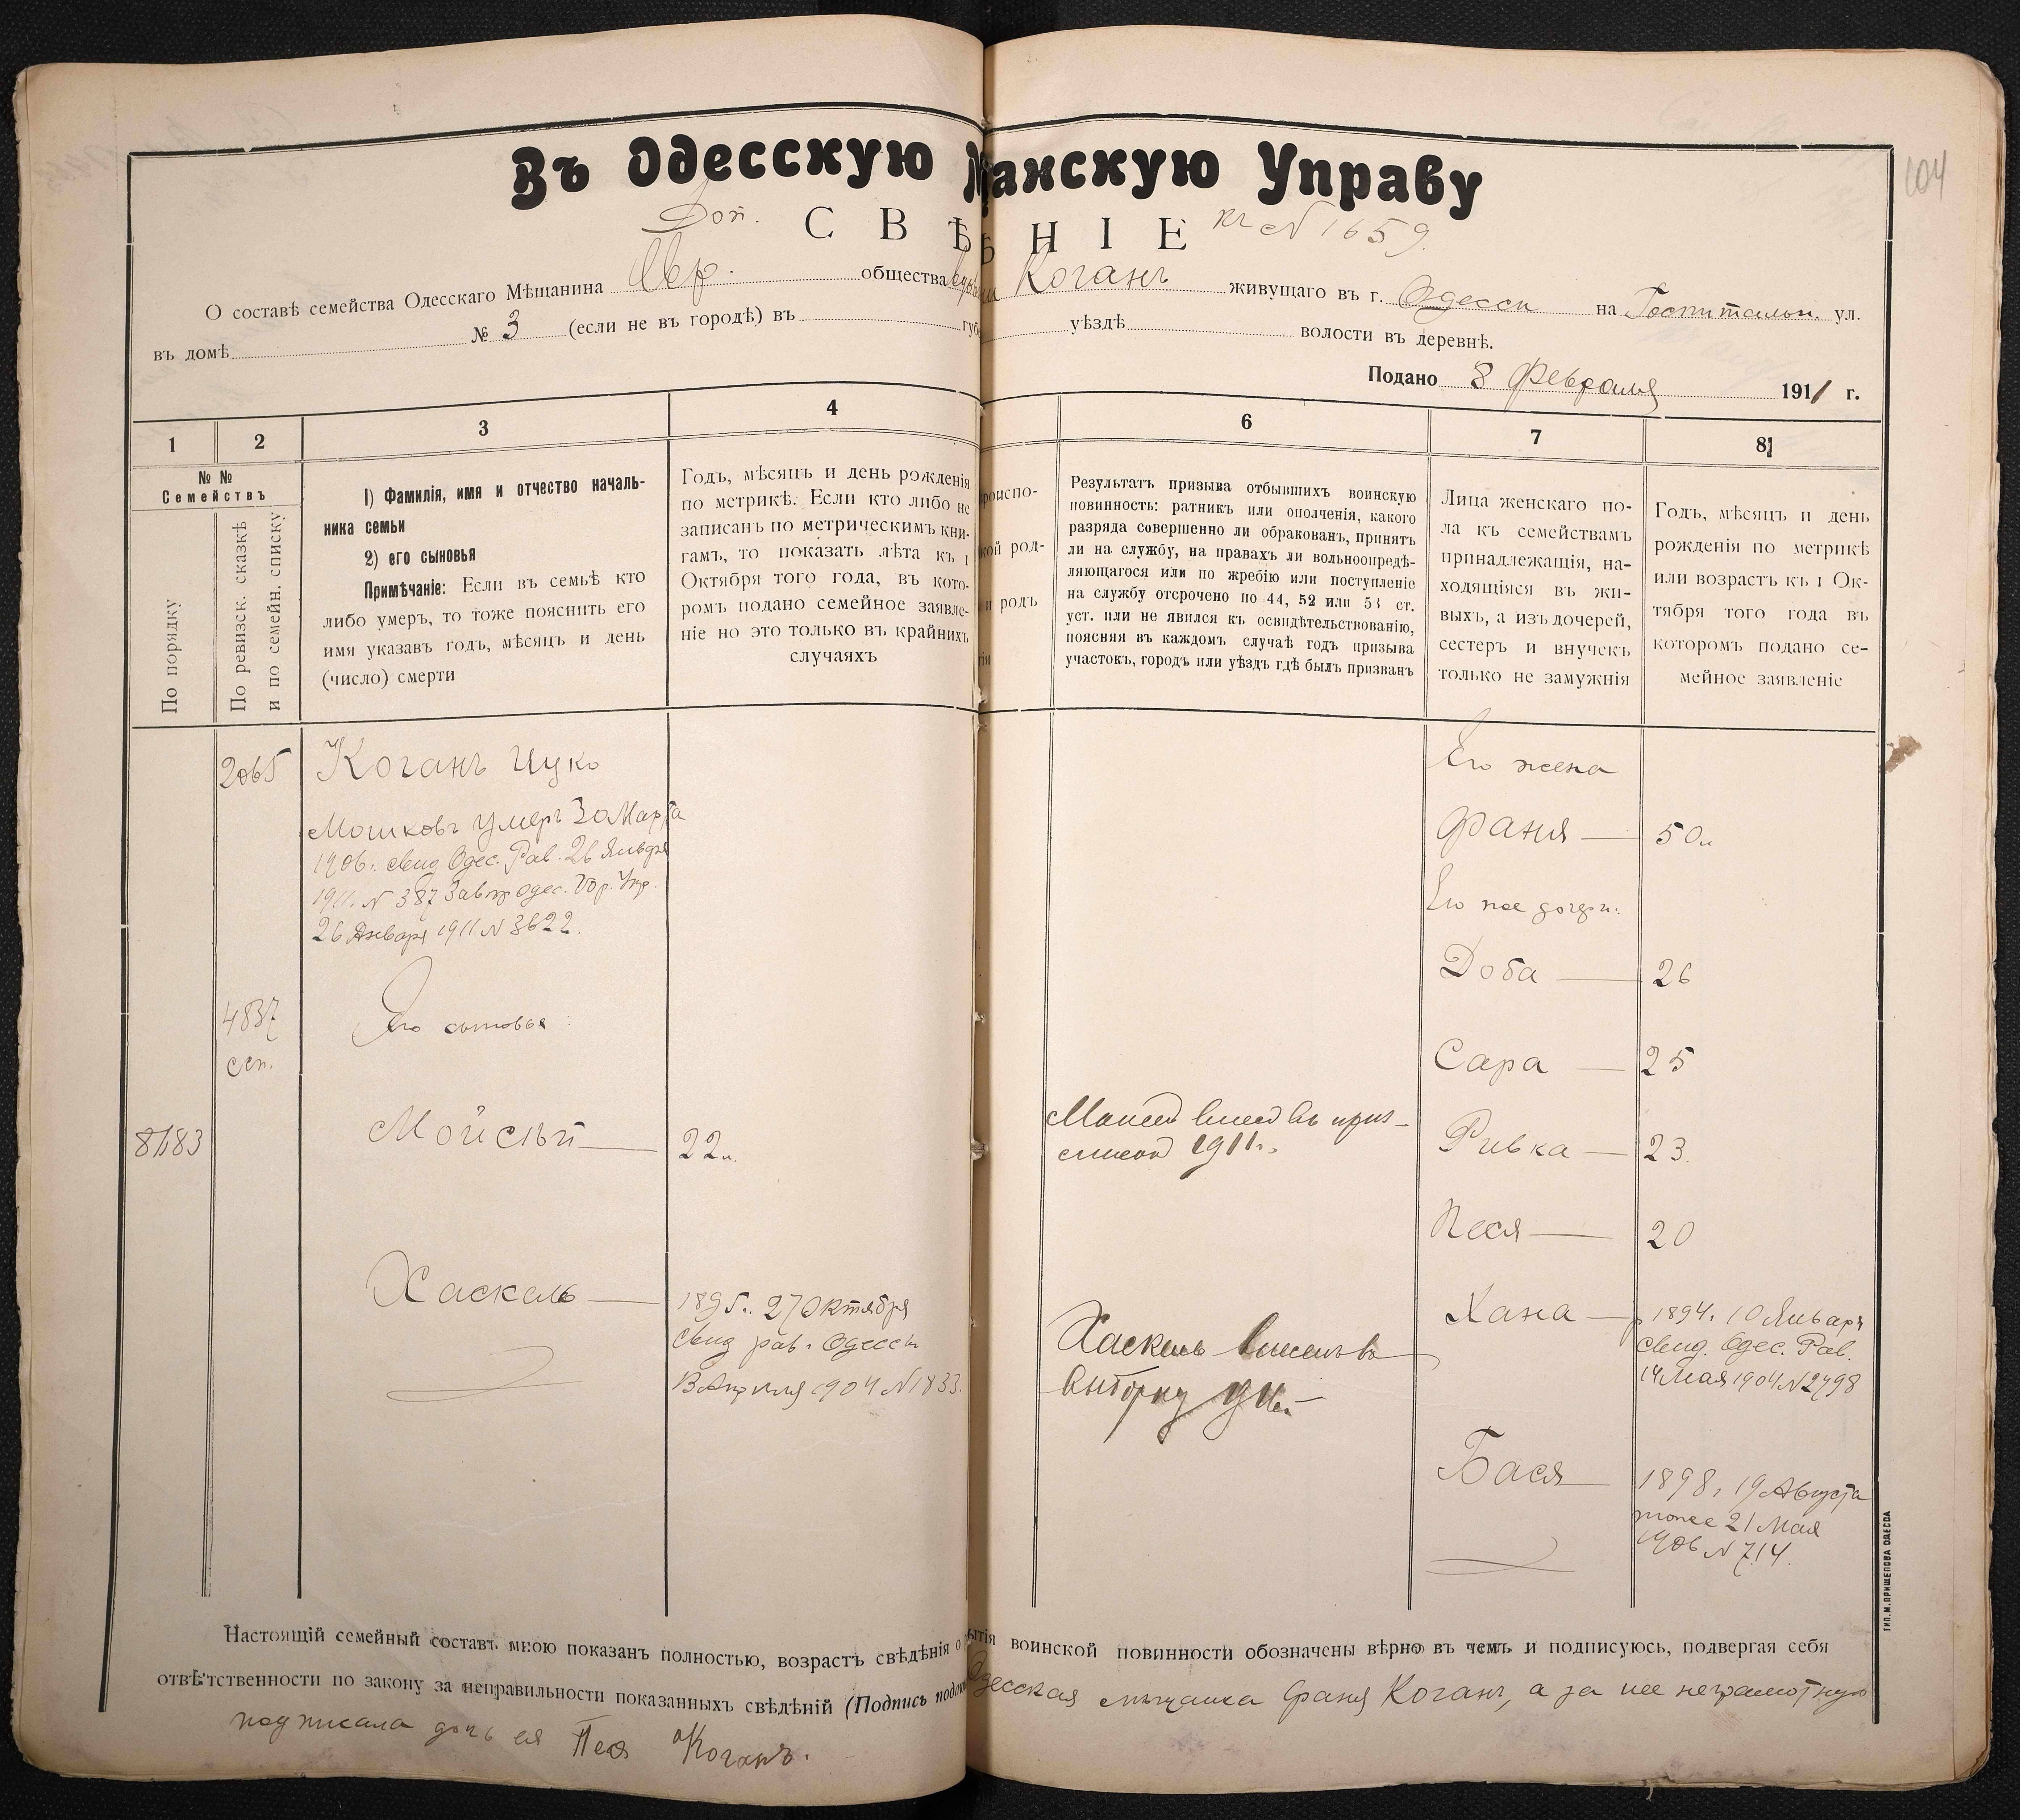 104
Въ Одесскую анскую Управу
Доп. СВѢ НІЕ къ N 1659.
О составѣ семейства Одесскаго Мѣщанина Евр. общества Коганъ живущаго въ г. Одесси на Госпитальн. ул.
въ домѣ № 3 (если не въ городѣ) въ губ уѣздѣ волости въ деревнѣ.
Подано 8 Февраля 1911 г.
1 2 3 4 6 7 8
№ №
Семействъ
По порядку
По ревизск. сказкѣ
и по семейн. списку
1) Фамилія, имя и отчество началь-
ника семьи
2) его сыновья
Примѣчаніе: Если въ семьѣ кто
либо умеръ, то тоже пояснить его
имя указавъ годъ, мѣсяцъ и день
(число) смерти
Годъ, мѣсяцъ и день рожденія
по метрикѣ. Если кто либо не
записанъ по метрическимъ кни-
гамъ, то показать лѣта къ 1
Октября того года, въ кото-
ромъ подано семейное заявле-
ніе но это только въ крайнихъ
случаяхъ
роиспо-
кой род-
и родъ
гія
Результатъ призыва отбывшихъ воинскую
повинность: ратникъ или ополченія, какого
разряда совершенно ли обракованъ, принятъ
ли на службу, на правахъ ли вольноопредѣ-
ляющагося или по жребію или поступленіе
на службу отсрочено по 44, 52 или 53 ст.
уст. или не явился къ освидѣтельствованію,
поясняя въ каждомъ случаѣ годъ призыва
участокъ, городъ или уѣздъ гдѣ былъ призванъ
Лица женскаго по-
ла къ семействамъ
принадлежащія, на-
ходящіяся въ жи-
выхъ, а изъ дочерей,
сестеръ и внучекъ
только не замужнія
Годъ, мѣсяцъ и день
рожденія по метрикѣ
или возрастъ къ 1 Ок-
тября того года въ
которомъ подано се-
мейное заявленіе
2065 Коганъ Ицко
Мошковъ умеръ 30 Марта
1906 г. свид Одес. Рав. 26 Января
1911 г. N 387 Завпр Одес. Гор. Упр.
26 Января 1911 N 3622.
4837
сп.
Его сыновья:
8683 Мойсѣй 22 л.
Хаскель 1895 г. 27 Октября
свид рав. Одессы
13 Апреля 1904 N 1833.
призс
списокъ 1911 г.
Хаскель
Его жена
Фаня 50 л
Его же дочери:
Доба 26
Сара 25
Ривка 23
Песя 20
Хана р 1894 г. 10 Января
свид. Одес. Рав.
14 Мая 1904 N 2798
Бася 1898 г 19 Августа
тоже 21 Мая
1906 N 714.
Настоящій семейный составъ мною показанъ полностью, возрастъ свѣдѣнія о ытія воинской повинности обозначены вѣрно въ чемъ и подписуюсь, подвергая себя
отвѣтственности по закону за неправильности показанныхъ свѣдѣній (Подпись Одесская мѣщанка Фаня Коганъ, а за нее неграмотную
подписала дочь ея Песя Коганъ.
ТИП. М. ПРИЩЕПОВА ОДЕССА